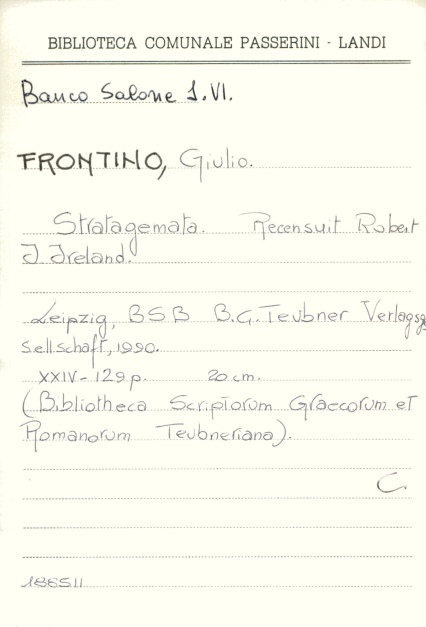 BIBLIOTECA COMUNALE PASSERINI - LANDI
Banco Salone I.VI.
FRONTINO, Giulio.
Stratagemata. Recensuit Robert
I. Ireland.
Leipzig, BSB B.G. Teubner Verlagsge
sellschaft, 1990.
XXIV - 129 p. 20 cm.
(Bibliotheca Scriptorum Graecorum et
Romanorum Teubneriana).
C.
186511